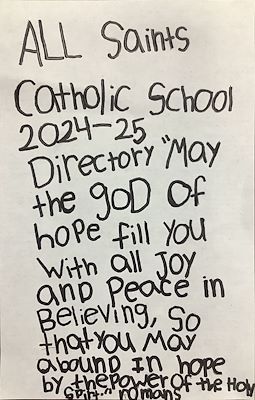 ALL Saints
Catholic School
2024-25
Directory "May
the goD Of
hope fill you
With all Joy
anD Peace in
Believing, So
that you May
abound In hope
by the Power of the Holy
Spirit." romans